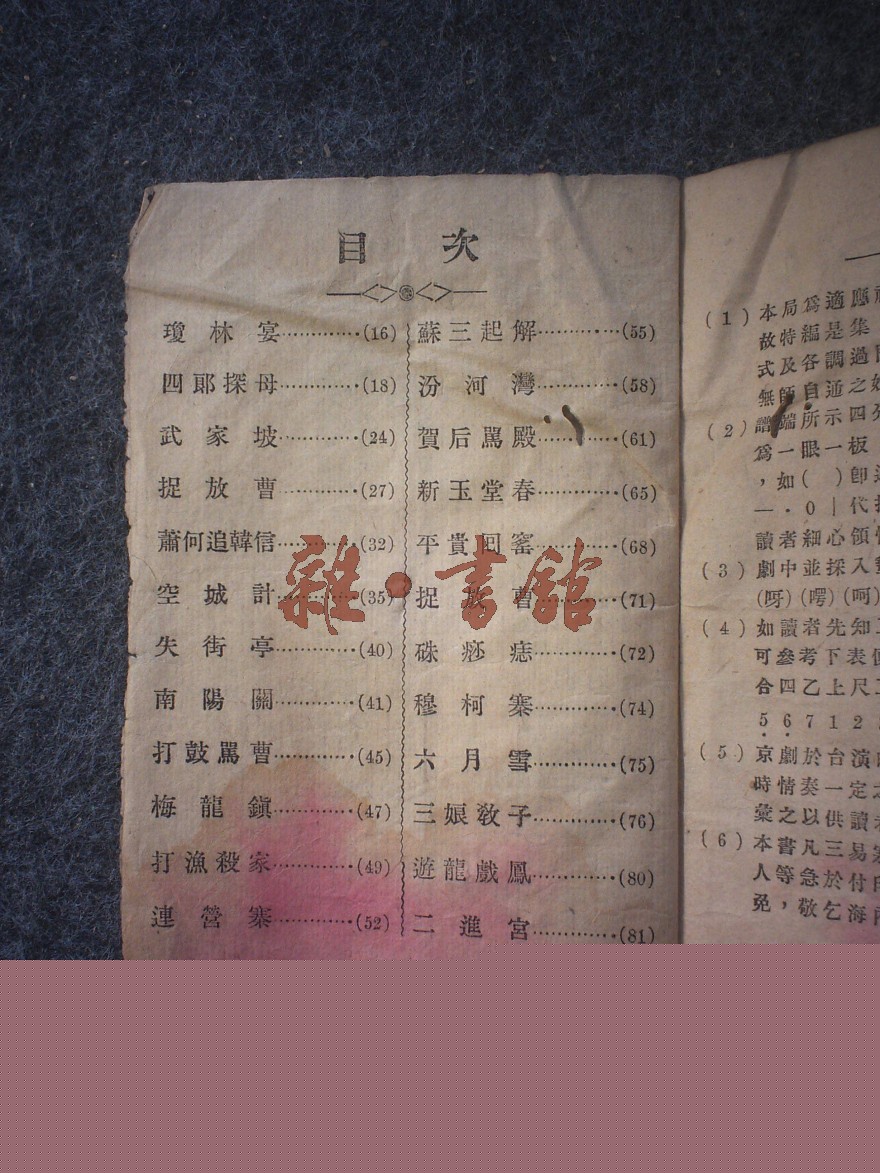 目次
瓊林宴············(16)
四郞探母············(18)
武家坡············(24)
捉放曹············(27)
蕭何追韓信············(32)
空城計············(35)
失街亭············(40)
南陽關············(41)
打鼓罵曹············(45)
梅龍鎭············(47)
打漁殺家············(49)
連營寨············(52)
蘇三起解············(55)
汾河灣············(58)
賀后罵殿············(61)
新玉堂春············(65)
平貴回窰············(68)
捉放曹············(71)
硃痧痣············(72)
穆柯寨············(74)
六月雪············(75)
三娘敎子············(76)
遊龍戲鳳············(80)
二進宮············(81)
雜·書館
(1) 本局爲適應
故特編是集
式及各調過
無師自通之
(2) 譜端所示四
爲一眼一板
，如( )卽
一·0|代
讀者細心領
(3) 劇中並採入
(呀)(喔)(呵)
(4) 如讀者先知
可參考下表
合四乙上尺
5 6 7 1 2
(5) 京劇於台演
時情奏一定
彙之以供讀
(6) 本書凡三易
人等急於付
免，敬乞海